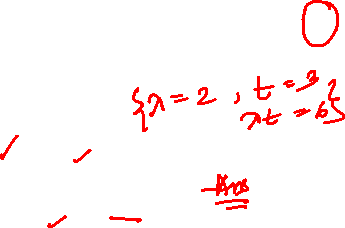 0
{λ = 2 , t = 3
λt = 6}
Ans